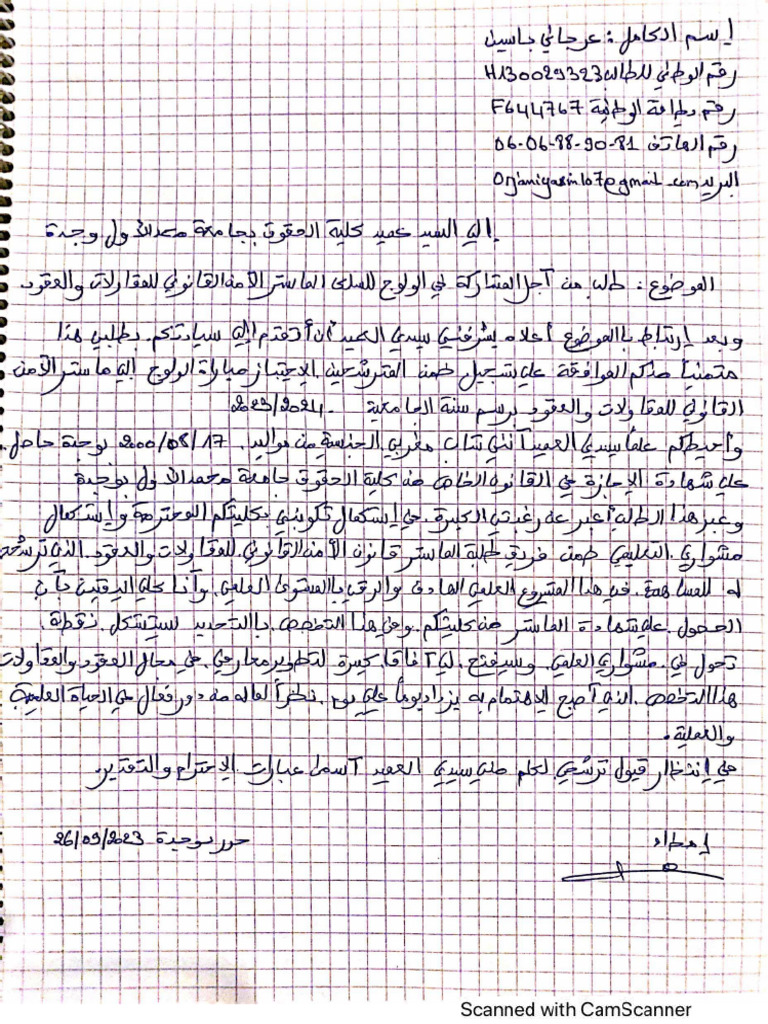 إسم الكامل : عرجاني ياسين
رقم الوطني للطالب H130029323
رقم بطاقة الوطنية F644767
رقم الهاتف 06-06-88-90-81
البريد Orjaniyasin107@gmail.com
إلى السيد عميد كلية الحقوق بجامعة محمد الأول وجدة
الموضوع : طلب من آجل المشاركة في الولوج للسلك الماستر الأمن القانوني للمقاولات والعقود
وبعد إرتباط بالموضوع أعلاه يشرفني سيدي العميد أن أتقدم إلى سيادتكم بطلبي هذا
متمنياً منكم الموافقة على تسجيل ضمن المترشحين لإجتياز مباراة الولوج إلى ماستر الأمن
القانوني للمقاولات والعقود برسم سنة الجامعية 2023/2024.
وأحيطكم علماً سيدي العميد آنني شاب مغربي الجنسية من مواليد 2000/08/17 بوجدة حاصل
على شهادة الإجازة في القانون الخاص من كلية الحقوق جامعة محمد الأول بوجدة
وعبر هذا الطلب أعبر عن رغبتي الكبيرة في إستكمال تكويني بكليتكم المحترمة وإستكمال
مشواري التعليمي ضمن فريق طلبة الماستر قانون الأمن القانوني للمقاولات والعقود الذي ترشحة
له للمساهمة في هذا المشروع العلمي الهادف والرقي بالمستوى العلمي وآنا على اليقين بآن
الحصول على شهادة الماستر من كليتكم وفي هذا التخصص بالتحديد سيشكل نقطة
تحول في مشواري العلمي وسيفتح لي آفاقا كبيرة لتطوير معارفي في مجال العقود والمقاولات
هذا التخصص الذي آصبح الإهتمام به يزداد يوماً على يوم نظراً لماله من دور فعال في الحياة العلمية
والعملية.
في إنتظار قبول ترشحي لكم مني سيدي العميد آسمى عبارات الإحترام والتقدير.
حرر بوجدة 26/09/2023
إمضاء
Scanned with CamScanner